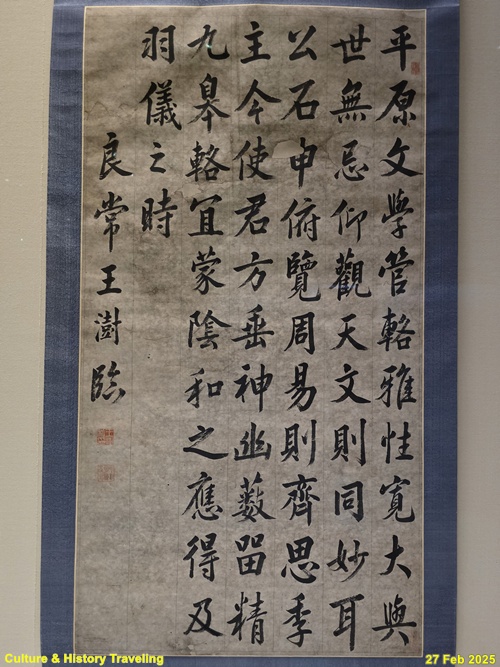 平原文學管輅雅性寬大與
世無忌仰觀天文則同妙耳
公石申俯覽周易則齊思季
主今使君方垂神幽藪留精
九皋輅宜蒙陰和之應得及
羽儀之時
良常王澍臨
Culture & History Traveling
27 Feb 2025